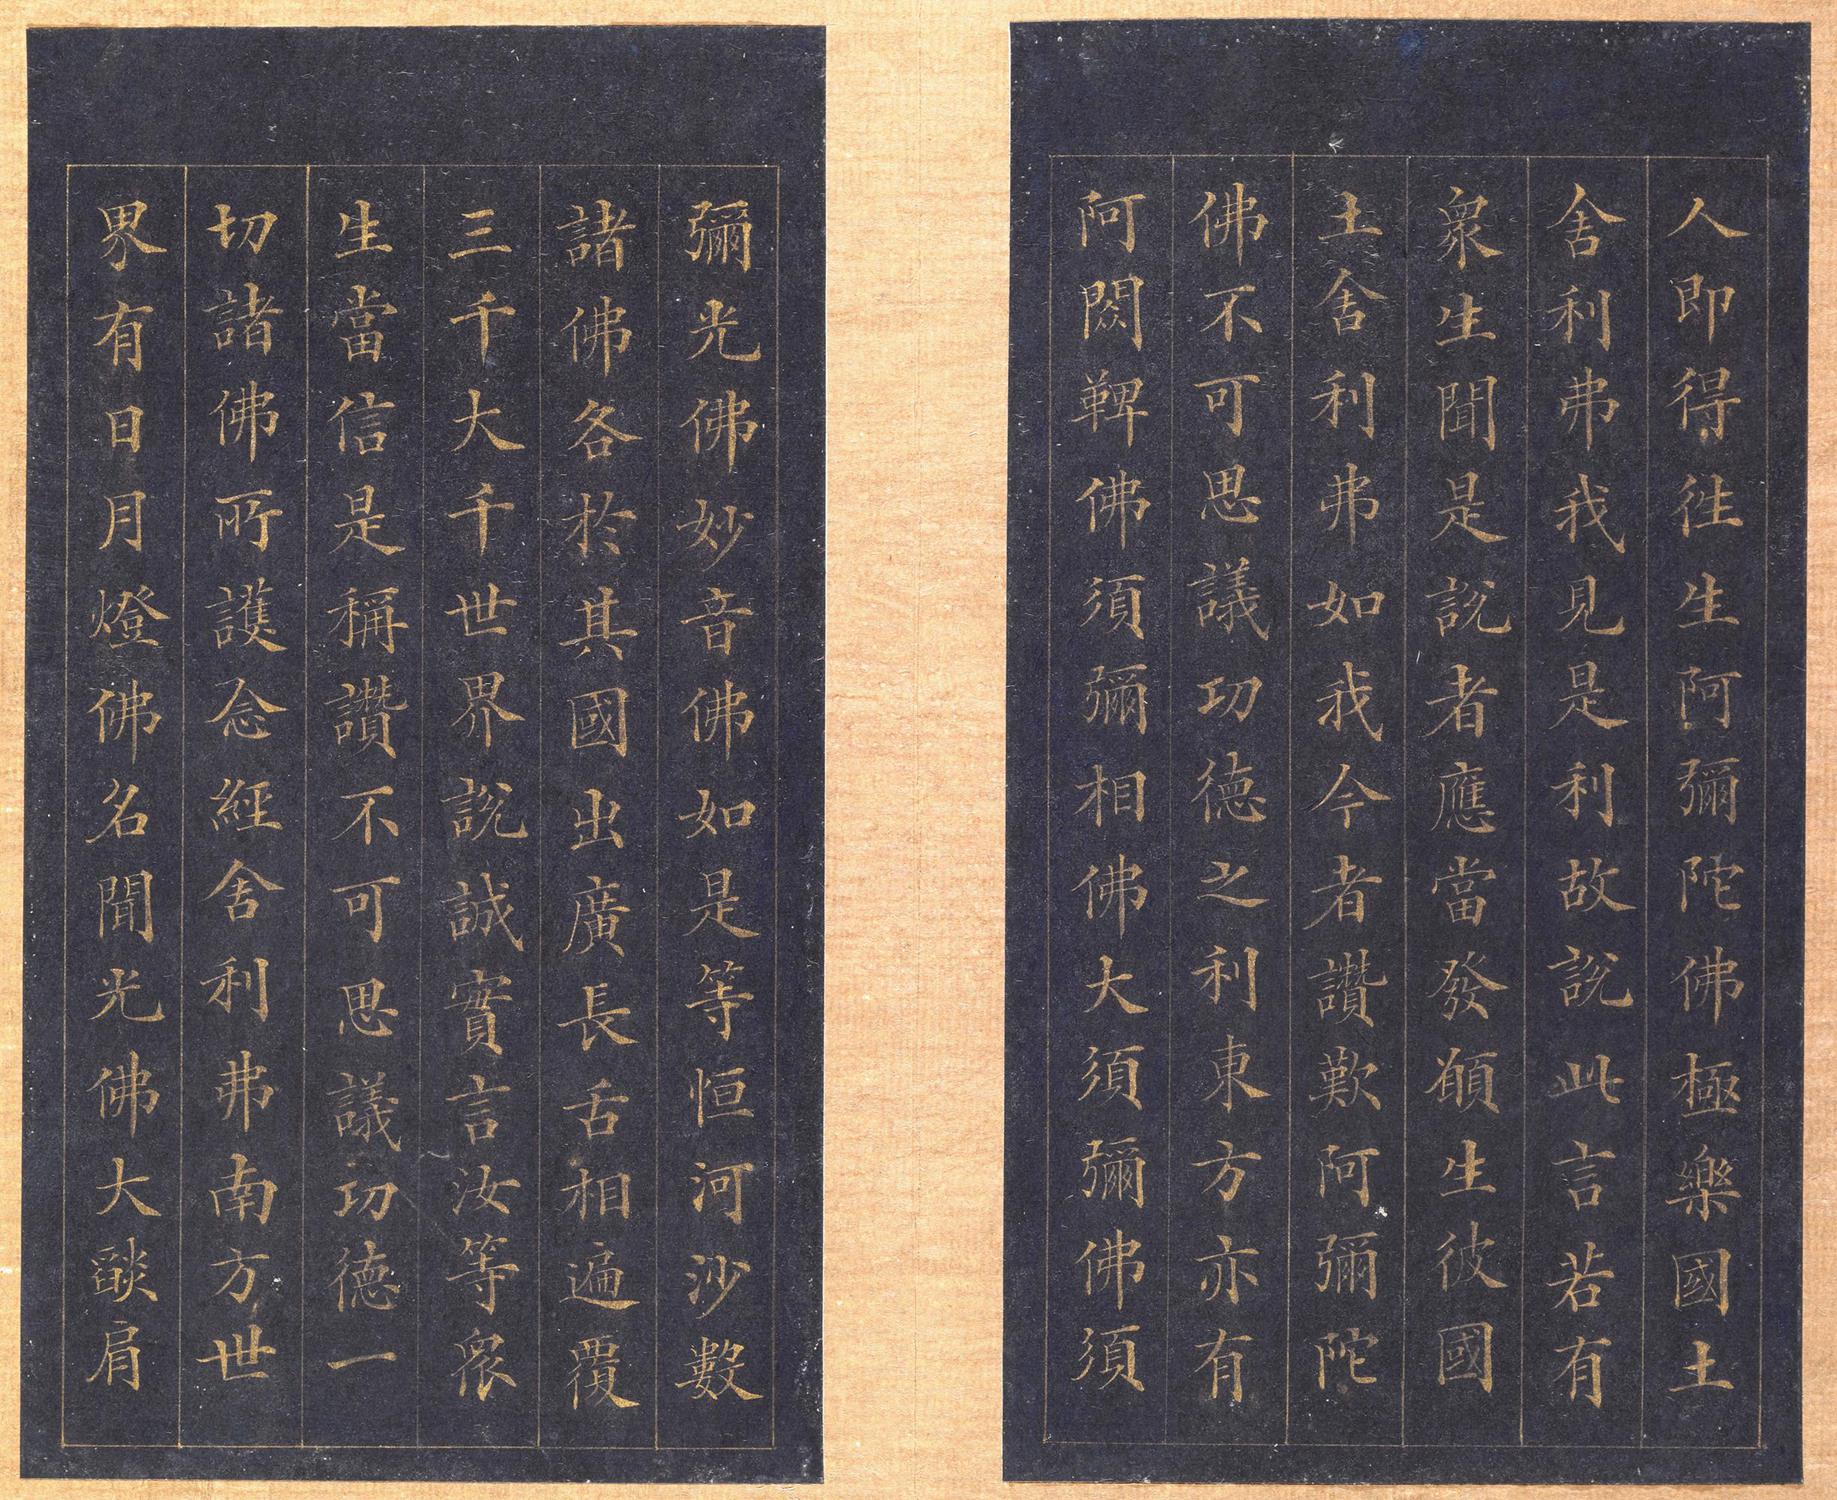 人即得往生阿彌陀佛極樂國土
舍利弗我見是利故說此言若有
衆生聞是說者應當發願生彼國
土舍利弗如我今者讚歎阿彌陀
佛不可思議功德之利東方亦有
阿閦鞞佛須彌相佛大須彌佛須
彌光佛妙音佛如是等恒河沙數
諸佛各於其國出廣長舌相遍覆
三千大千世界說誠實言汝等衆
生當信是稱讚不可思議功德一
切諸佛所護念經舍利弗南方世
界有日月燈佛名聞光佛大燄肩